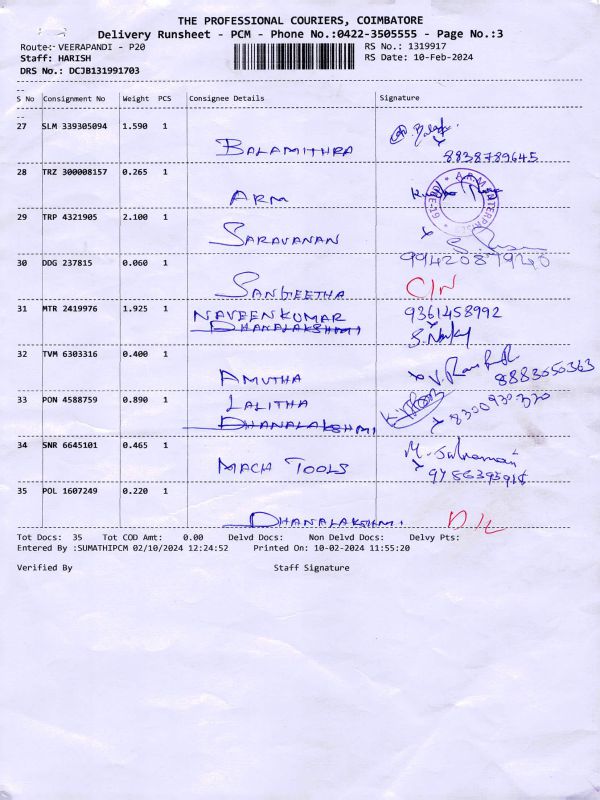 THE PROFESSIONAL COURIERS, COIMBATORE
Delivery Runsheet - PCM - Phone No.:0422-3505555 - Page No.:3
Route: VEERAPANDI - P20 RS No.: 1319917
Staff: HARISH RS Date: 10-Feb-2024
DRS No.: DCJB131991703
S No Consignment No Weight PCS Consignee Details Signature
27 SLM 339305094 1.590 1
BALAMITHRA
8838789645
28 TRZ 300008157 0.265 1
ARM
29 TRP 4321905 2.100 1
SARAVANAN
30 DDG 237815 0.060 1
SANGEETHA
31 MTR 2419976 1.925 1 NAVEENKUMAR 9361458992
DHANALAKSHMI
32 TVM 6303316 0.400 1
AMUTHA 8883050363
33 PON 4588759 0.890 1 LALITHA
DHANALAKSHMI
34 SNR 6645101 0.465 1
MACH TOOLS
35 POL 1607249 0.220 1
DHANALAKSHMI
Tot Docs: 35 Tot COD Amt: 0.00 Delvd Docs: Non Delvd Docs: Delvy Pts:
Entered By :SUMATHIPCM 02/10/2024 12:24:52 Printed On: 10-02-2024 11:55:20
Verified By Staff Signature